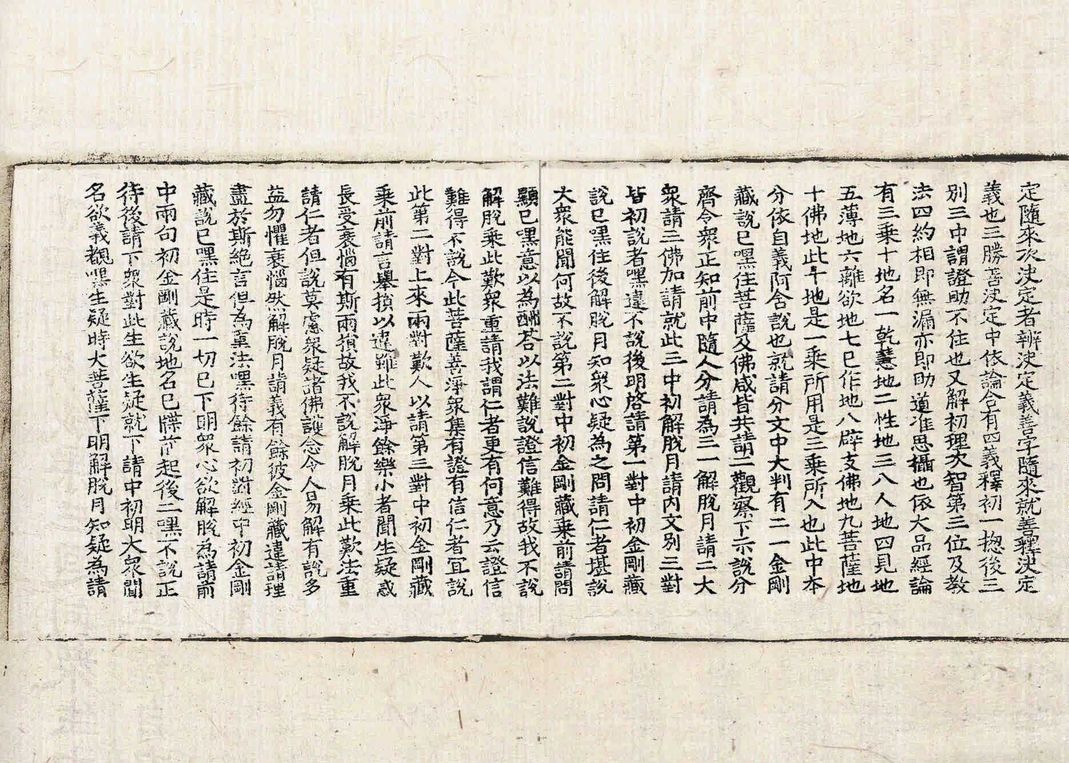 定隨來次決定者辨決定義善字隨來就善釋決定
義也三勝善決定中依論合有四義釋初一揔後三
別三中謂證助不住也又解初理次智第三位及教
法四約相即無漏亦即助道准思攝也依大品經論
有三乘十地名一乾慧地二性地三八人地四見地
五薄地六離欲地七已作地八辟支佛地九菩薩地
十佛地此十地是一乘所用是三乘所入也此中本
分依自義阿含說也就請分文中大判有二一金剛
藏說已嘿住菩薩及佛咸皆共請二觀察下示說分
齊令衆正知前中隨人分請為三一解脫月請二大
衆請三佛加請就此三中初解脫月請內文別三對
皆初說者嘿違不說後明啓請第一對中初金剛藏
說已嘿住後解脫月知衆心疑為之問請仁者堪說
大衆能聞何故不說第二對中初金剛藏乘前請問
顯已嘿意以為酬荅以法難說證信難得故我不說
解脫乘此歎衆重請我謂仁者更有何意乃云證信
難得不說今此菩薩善淨衆集有證有信仁者宜說
此第二對上來兩對歎人以請第三對中初金剛藏
乘前請言舉損以違雖此衆淨餘樂小者聞生疑惑
長受衰惱有斯兩損故我不說解脫月乘此歎法重
請仁者但說莫慮衆疑諸佛護念令人易解有說多
益勿懼衰惱然解脫月請義有餘彼金剛藏違請理
盡於斯絕言但為重法嘿待餘請初對經中初金剛
藏說已嘿住是時一切已下明衆心欲解脫為請前
中兩句初金剛藏說地名已牒前起後二嘿不說正
待後請下衆對此生欲生疑就下請中初明大衆聞
名欲義覩嘿生疑時大菩薩下明解脫月知疑為請